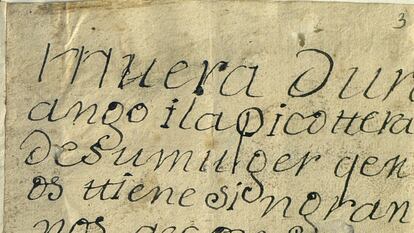 3
Muera Dur
ango i la picottera
de su mulger qen
os ttiene sin gran